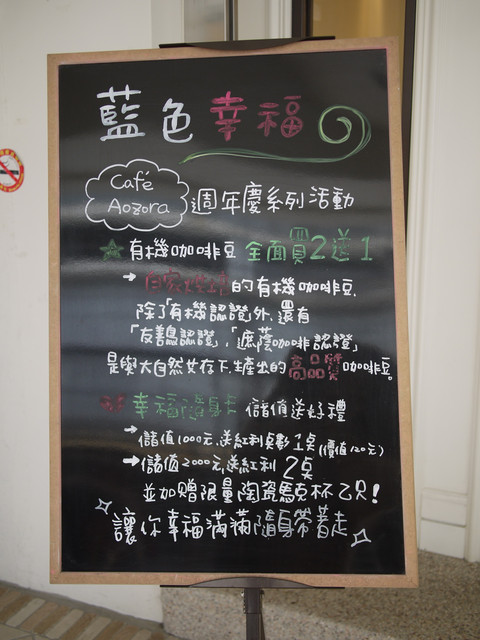 藍色幸福
Café
Aozora
週年慶系列活動
有機咖啡豆 全面買2送1
自家烘焙的有機咖啡豆.
除了「有機認證」外,還有
「友善鳥認證」.「遮蔭咖啡認證」
是與大自然共存下生產出的高品質咖啡豆。
幸福隨身卡 儲值送好禮
儲值1000元,送紅利點數1点(價值120元)
儲值2000元,送紅利2点
並加贈限量陶瓷馬克杯乙只!
讓你幸福滿滿隨身帶著走